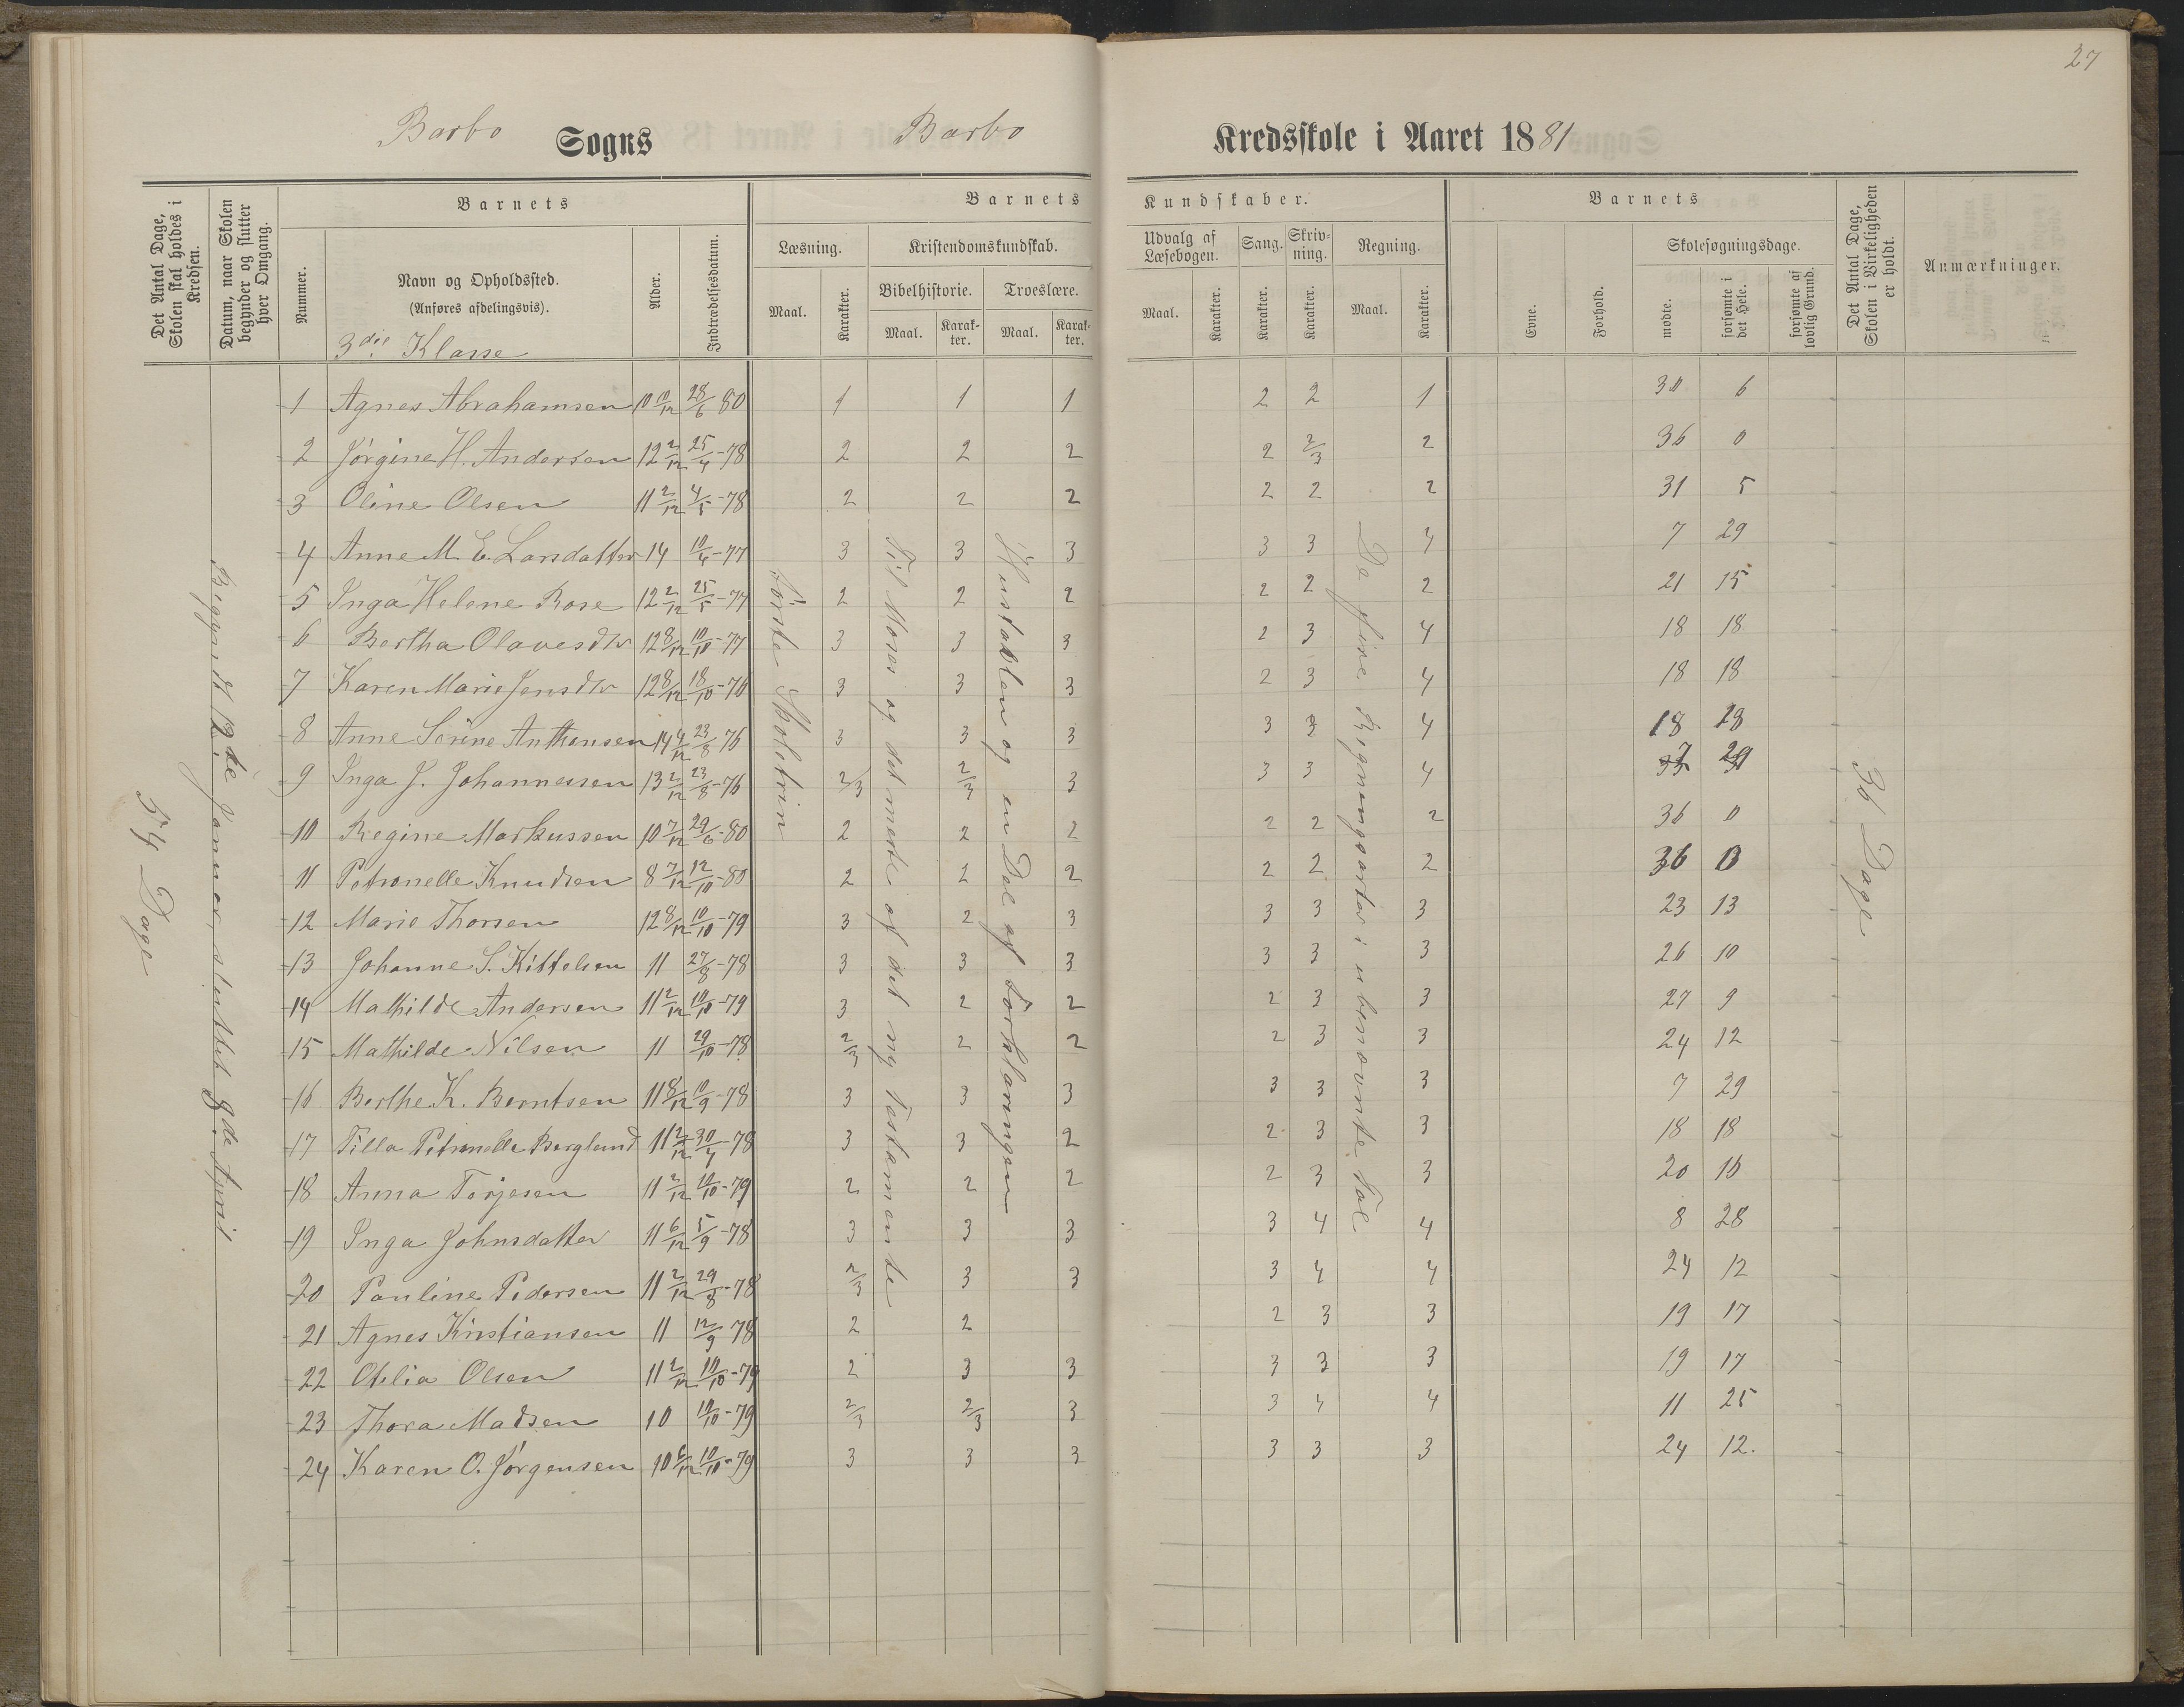 27
Barbo Sogns Barbo Kredsskole i Aaret 1881
Det Antal Dage, Skolen skal holdes i Kredsen.
Datum, naar Skolen begynder og slutter hver Omgang.
Barnets
Nummer.
Navn og Opholdssted.
(Anføres afdelingsvis).
3die Klasse
Alder.
Indtrædelsesdatum.
Barnets Kundskaber.
Læsning.
Maal.
Karakter.
Kristendomskundskab.
Bibelhistorie.
Maal.
Karakter.
Troeslære.
Maal.
Karakter.
Udvalg af Læsebogen.
Maal.
Karakter.
Sang.
Karakter.
Skrivning.
Karakter.
Regning.
Maal.
Karakter.
Barnets
Evne.
Forhold.
Skolesøgningsdage.
mødte.
forsømte i det Hele.
forsømte af lovlig Grund.
Det Antal Dage, Skolen i Virkeligheden er holdt.
Anmærkninger.
54 Dage
Begyndt 12te Januar, sluttet 8de April
Første Skoletrin
Til Moses og det meste af det ny Testamente
Hustavlen og en Del af Forklaringen
De fire Regningsarter i ubenævnte Tal
36 Dage
1 Agnes Abrahamsen 10 10/12 28/6 80 1 1 1 2 2 1 30 6
2 Jørgine H. Andersen 12 2/12 25/4-78 2 2 2 2 2/3 2 36 0
3 Oline Olsen 11 2/12 4/5-78 2 2 2 2 2 2 31 5
4 Anne M. E. Larsdatter 14 10/4-77 3 3 3 3 3 4 7 29
5 Inga Helene Rose 12 2/12 25/5-77 2 2 2 2 2 2 21 15
6 Bertha Olavesdtr 12 8/12 10/10-77 3 3 3 2 3 4 18 18
7 Karen Marie Jensdtr 12 8/12 18/10-76 3 3 3 2 3 4 18 18
8 Anne Serine Anthonsen 14 4/12 23/8 76 3 3 3 3 4 18
9 Inga J. Johannessen 13 2/12 23/8-76 2/3 2/3 3 3 3 4
10 Regine Markussen 10 7/12 29/6-80 2 2 2 2 2 2 36 0
11 Petronelle Knudsen 8 7/12 12/10-80 2 2 2 2 2 2 36
12 Marie Thorsen 12 8/12 10/10-79 3 2 3 3 3 3 23 13
13 Johanne S. Kittelsen 11 27/8-78 3 3 3 3 3 3 26 10
14 Mathilde Andersen 11 2/12 10/10-79 3 2 2 2 3 3 27 9
15 Mathilde Nilsen 11 29/10-78 2/3 2 2 2 3 3 24 12
16 Berthe K. Berntsen 11 8/12 10/9-78 3 3 3 3 3 3 7 29
17 Tilla Petronelle Berglund 11 2/12 30/4-78 3 3 2 2 3 3 18 18
18 Anna Torjesen 11 2/12 10/10-79 2 2 2 2 3 3 20 16
19 Inga Johnsdatter 11 6/12 5/9-78 3 3 3 3 4 4 8 28
20 Pauline Pedersen 11 2/12 29/8-78 2/3 3 3 3 4 4 24 12
21 Agnes Kristiansen 11 12/9 78 2 2 2 3 3 19 17
22 Otelia Olsen 11 2/12 10/10-79 2 3 3 3 3 3 19 17
23 Thora Madsen 10 10/10-79 2/3 2/3 3 3 4 4 11 25
24 Karen O. Jørgensen 10 6/12 10/10-79 3 3 3 3 3 3 24 12.